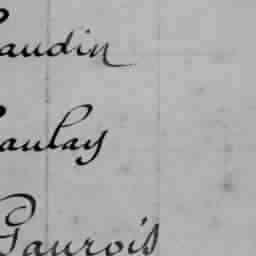 Gaudin
Gaulay
Gaurois